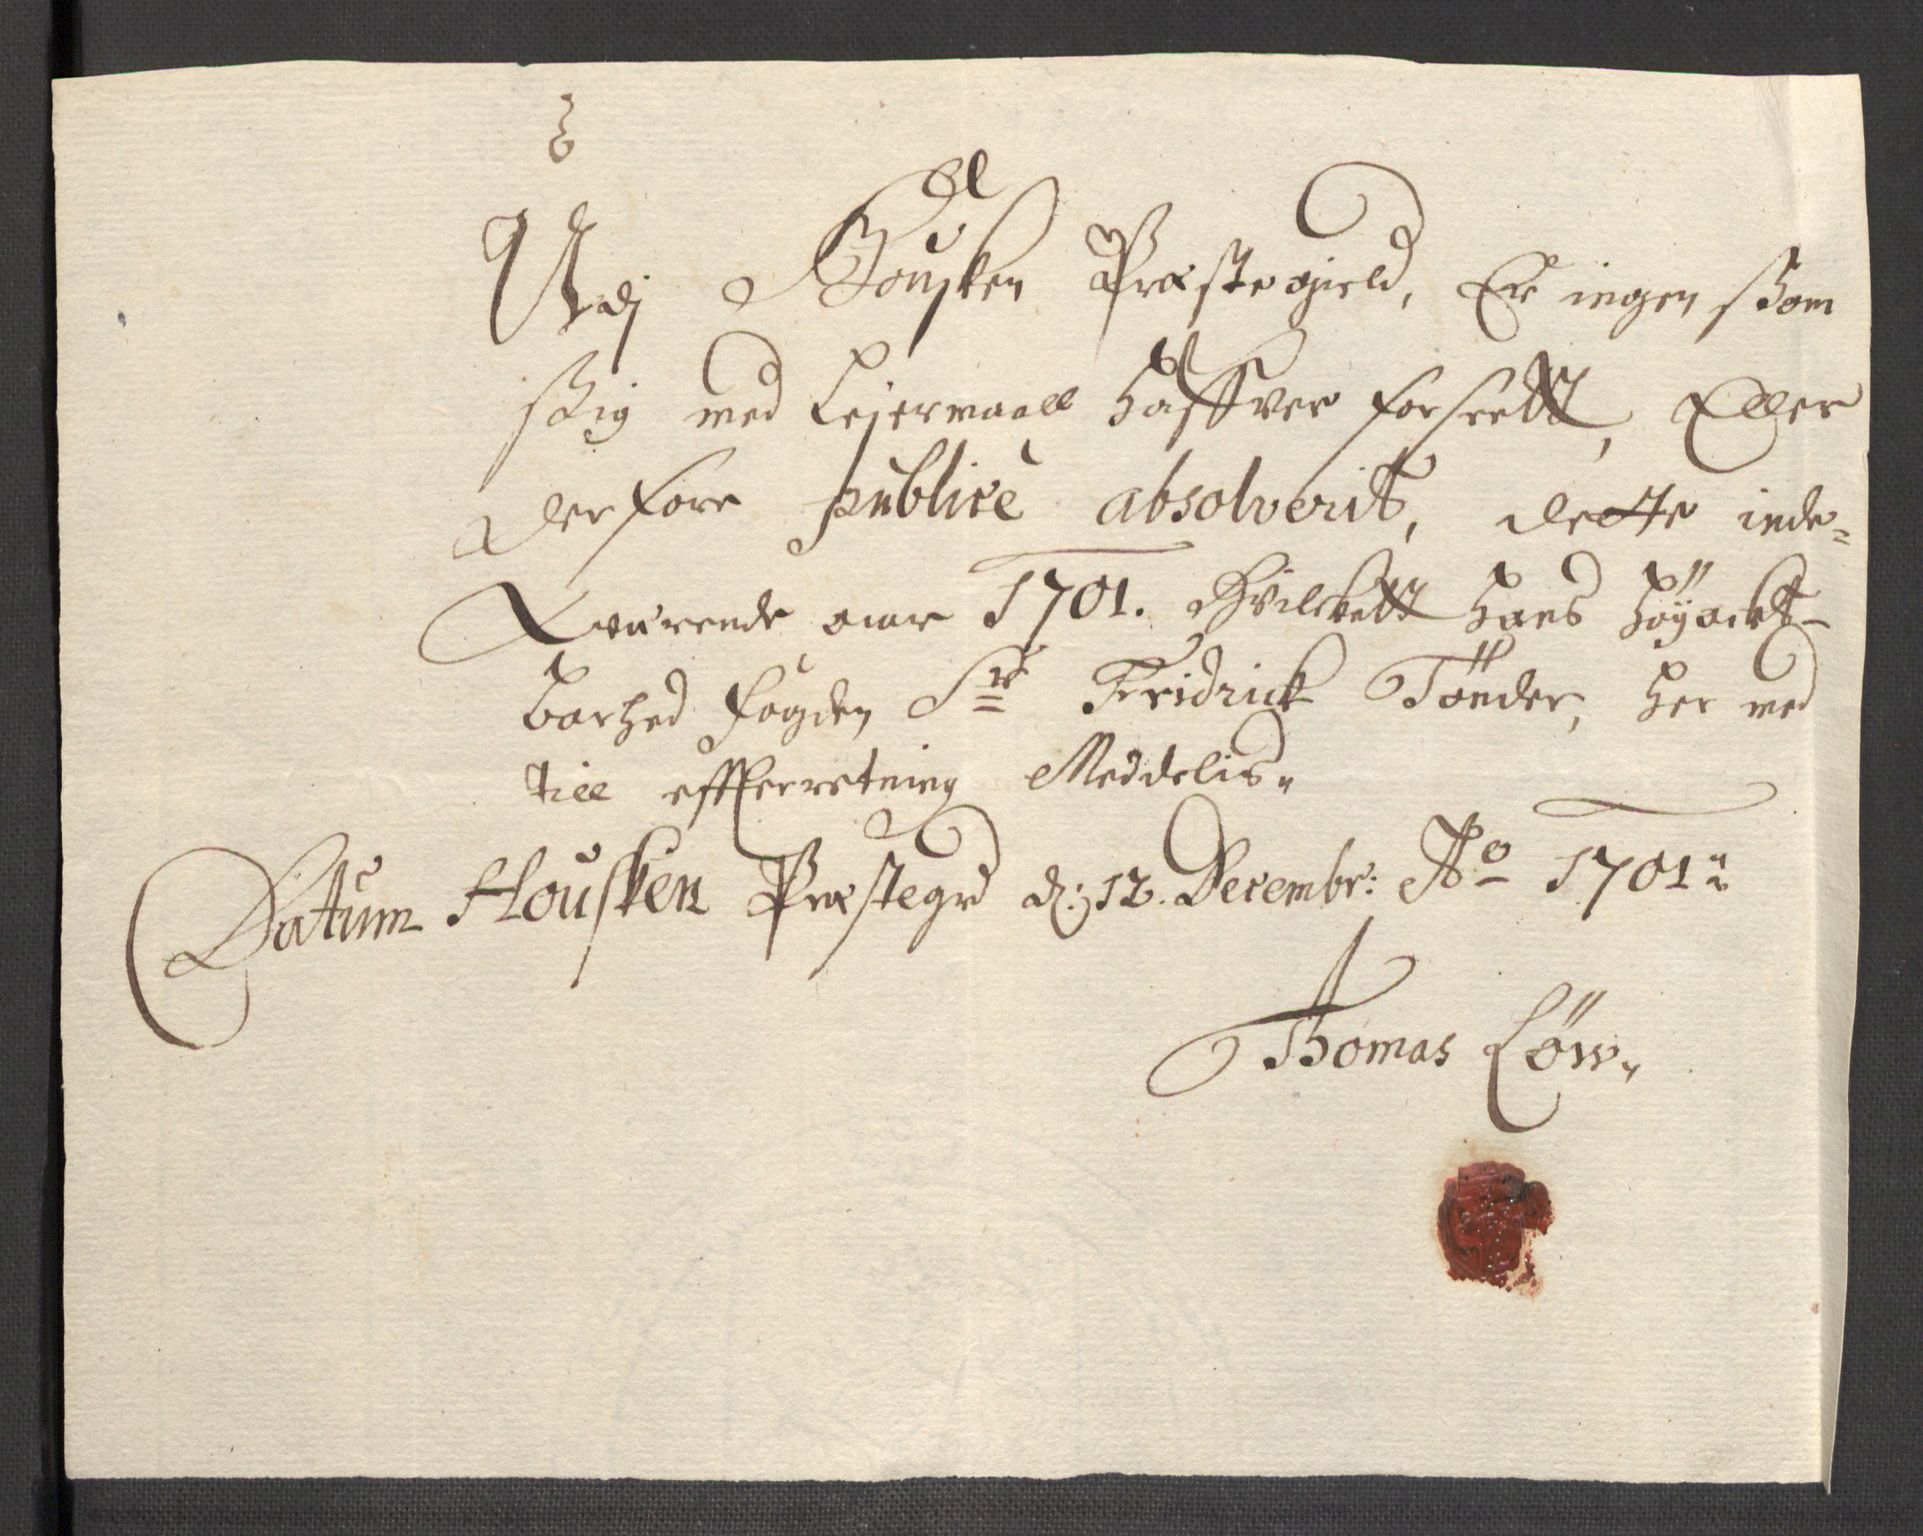 Udj Housken Præstegield, Er ingen ßom
ßig med Lejermaall haffver forseett, Eller
derfore publicè absolverit, dette inde=
værende aar 1701. Hvilckett hans höÿackt-
barhed fogden Sr Fridrick Tönder, her med
till effterretning Meddelis.
Datum Housken Præstegrd d: 12. Decembr: Ao 1701
Thomas Löw